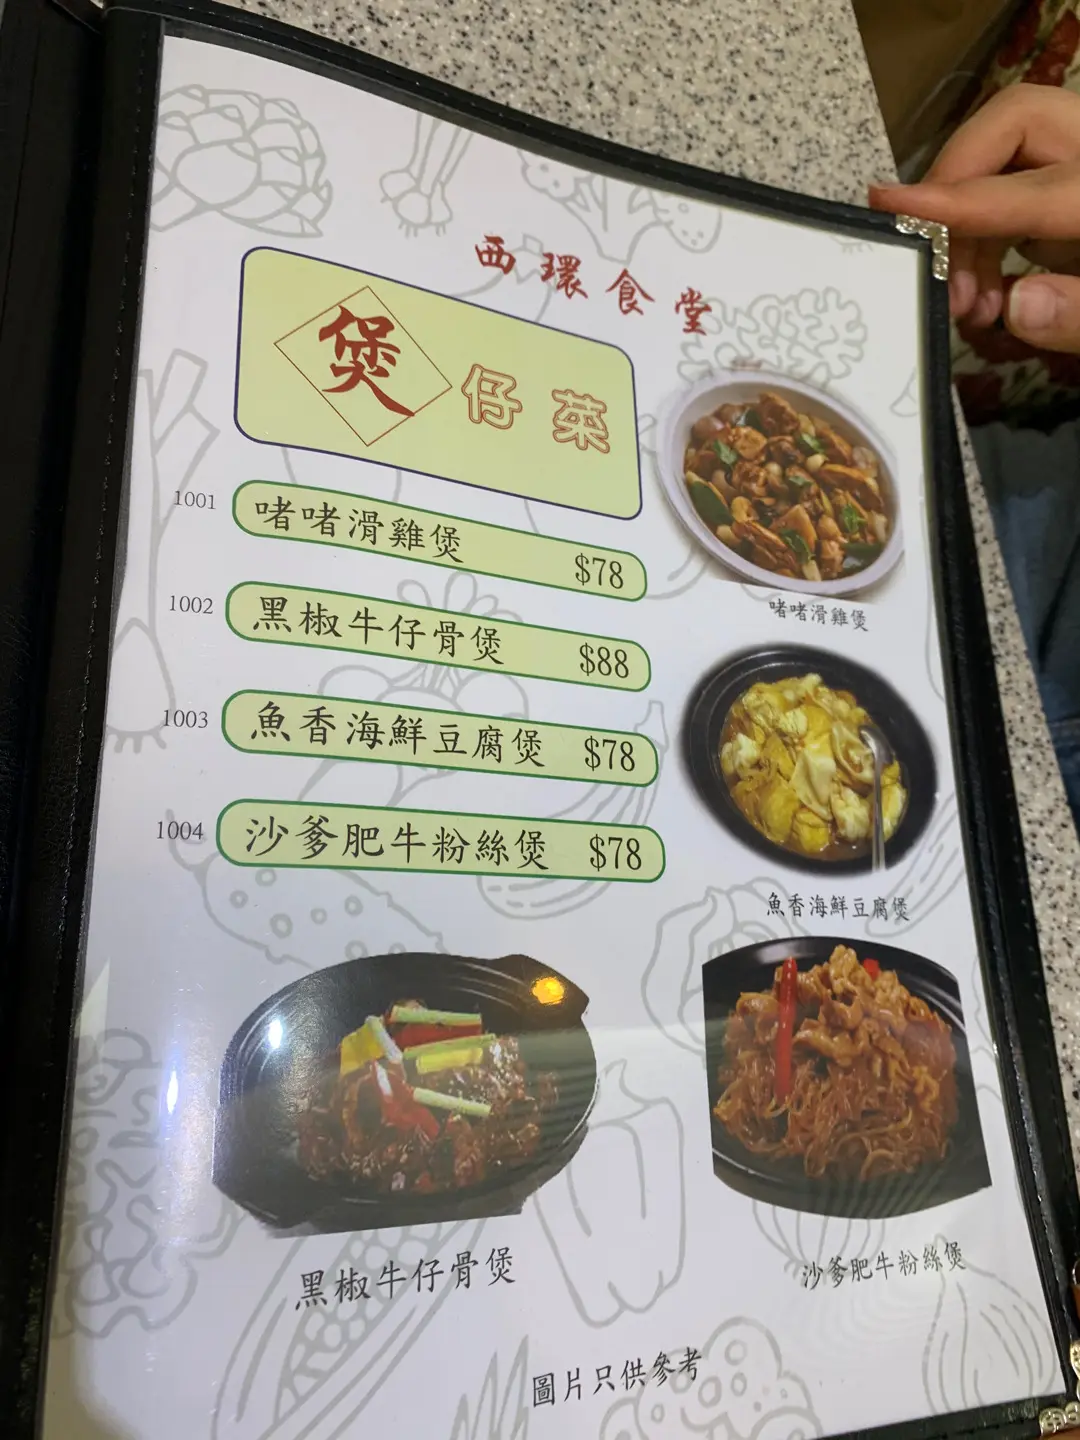 西環食堂
煲仔菜
1001 啫啫滑雞煲 $78
1002 黑椒牛仔骨煲 $88
1003 魚香海鮮豆腐煲 $78
1004 沙爹肥牛粉絲煲 $78
啫啫滑雞煲
魚香海鮮豆腐煲
黑椒牛仔骨煲
沙爹肥牛粉絲煲
圖片只供參考